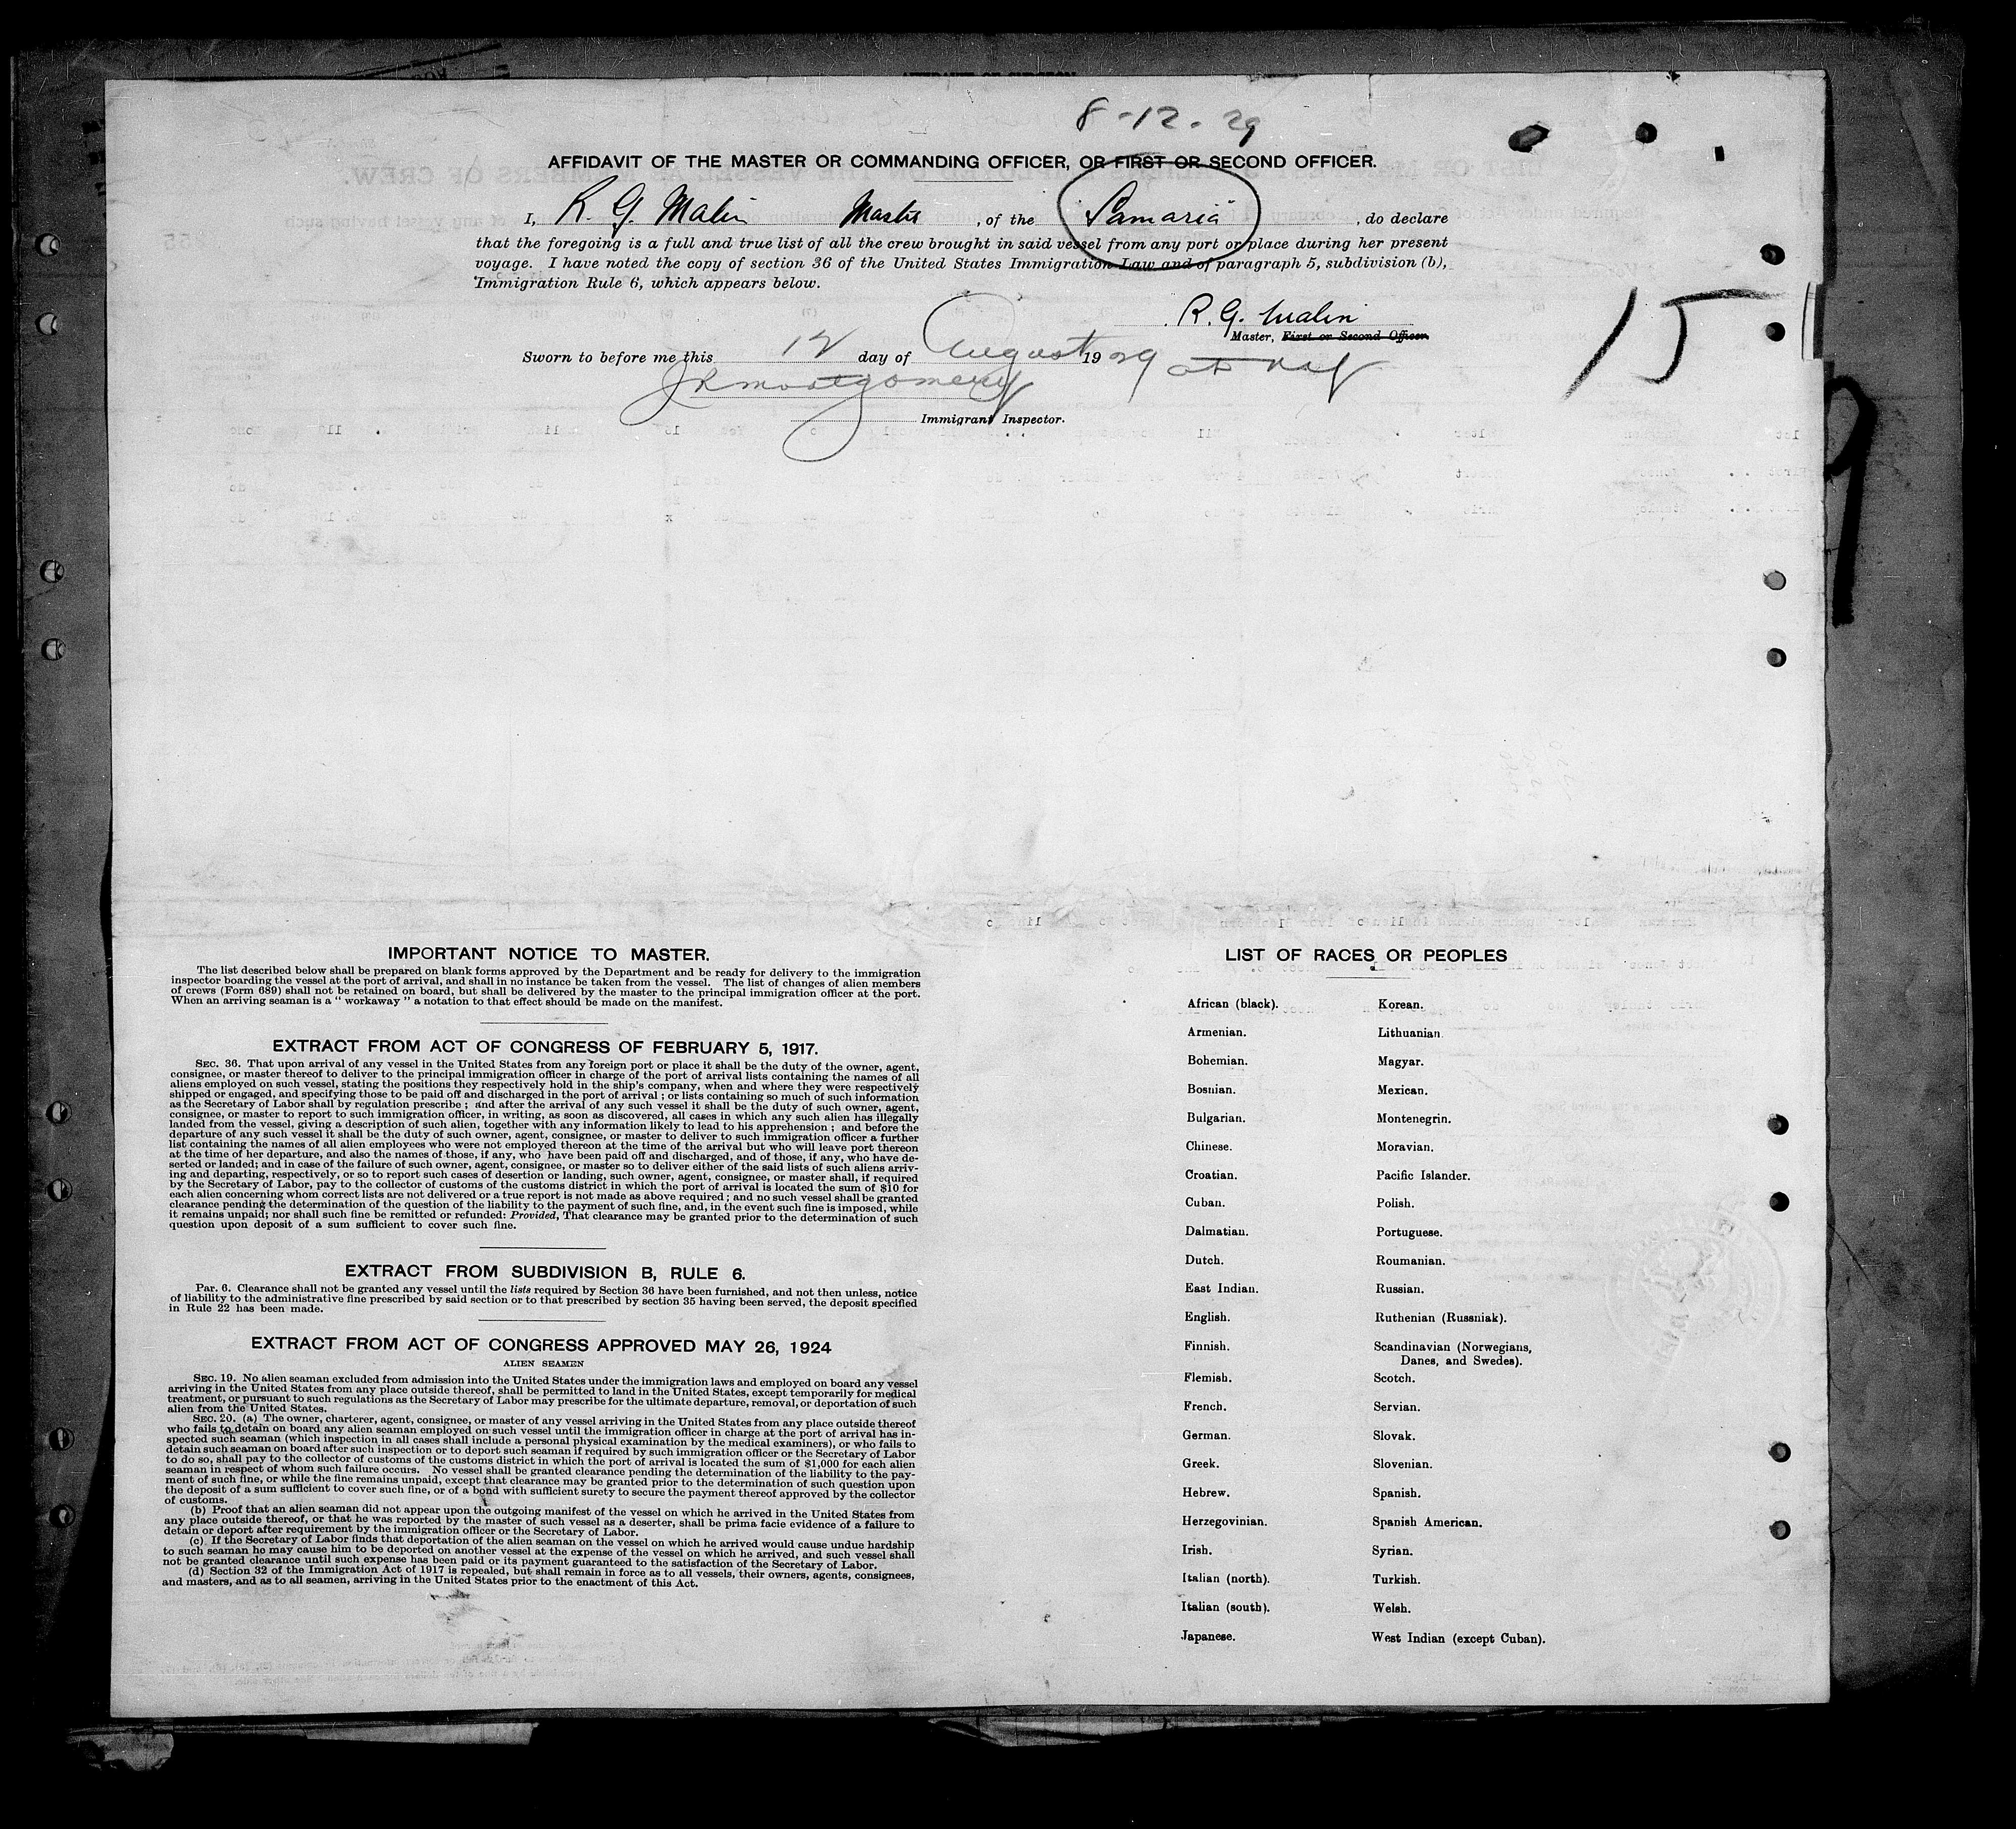 8-12-29
AFFIDAVIT OF THE MASTER OR COMMANDING OFFICER, OR FIRST OR SECOND OFFICER.
I, R. G. Malin Master, of the "Samaria", do declare
that the foregoing is a full and true list of all the crew brought in said vessel from any port or place during her present
voyage. I have noted the copy of section 36 of the United States Immigration Law and of paragraph 5, subdivision (b),
Immigration Rule 6, which appears below.
R. G. Malin
Master, First or Second Officer.
15
Sworn to before me this 12 day of August 1929
JR Montgomery
Immigrant Inspector.
9
IMPORTANT NOTICE TO MASTER.
The list described below shall be prepared on blank forms approved by the Department and be ready for delivery to the immigration
inspector boarding the vessel at the port of arrival, and shall in no instance be taken from the vessel. The list of changes of alien members
of crews (Form 689) shall not be retained on board, but shall be delivered by the master to the principal immigration officer at the port.
When an arriving seaman is a " workaway " a notation to that effect should be made on the manifest.
EXTRACT FROM ACT OF CONGRESS OF FEBRUARY 5, 1917.
SEC. 36. That upon arrival of any vessel in the United States from any foreign port or place it shall be the duty of the owner, agent,
consignee, or master thereof to deliver to the principal immigration officer in charge of the port of arrival lists containing the names of all
aliens employed on such vessel, stating the positions they respectively hold in the ship's company, when and where they were respectively
shipped or engaged, and specifying those to be paid off and discharged in the port of arrival ; or lists containing so much of such information
as the Secretary of Labor shall by regulation prescribe ; and after the arrival of any such vessel it shall be the duty of such owner, agent,
consignee, or master to report to such immigration officer, in writing, as soon as discovered, all cases in which any such alien has illegally
landed from the vessel, giving a description of such alien, together with any information likely to lead to his apprehension ; and before the
departure of any such vessel it shall be the duty of such owner, agent, consignee, or master to deliver to such immigration officer a further
list containing the names of all alien employees who were not employed thereon at the time of the arrival but who will leave port thereon
at the time of her departure, and also the names of those, if any, who have been paid off and discharged, and of those, if any, who have de-
serted or landed; and in case of the failure of such owner, agent, consignee, or master so to deliver either of the said lists of such aliens arriv-
ing and departing, respectively, or so to report such cases of desertion or landing, such owner, agent, consignee, or master shall, if required
by the Secretary of Labor, pay to the collector of customs of the customs district in which the port of arrival is located the sum of $10 for
each alien concerning whom correct lists are not delivered or a true report is not made as above required ; and no such vessel shall be granted
clearance pending the determination of the question of the liability to the payment of such fine, and, in the event such fine is imposed, while
it remains unpaid; nor shall such fine be remitted or refunded: Provided, That clearance may be granted prior to the determination of such
question upon deposit of a sum sufficient to cover such fine.
EXTRACT FROM SUBDIVISION B, RULE 6.
Par. 6. Clearance shall not be granted any vessel until the lists required by Section 36 have been furnished, and not then unless, notice
of liability to the administrative fine prescribed by said section or to that prescribed by section 35 having been served, the deposit specified
in Rule 22 has been made.
EXTRACT FROM ACT OF CONGRESS APPROVED MAY 26, 1924
ALIEN SEAMEN
SEC. 19. No alien seaman excluded from admission into the United States under the immigration laws and employed on board any vessel
arriving in the United States from any place outside thereof, shall be permitted to land in the United States, except temporarily for medical
treatment, or pursuant to such regulations as the Secretary of Labor may prescribe for the ultimate departure, removal, or deportation of such
alien from the United States.
SEC. 20. (a) The owner, charterer, agent, consignee, or master of any vessel arriving in the United States from any place outside thereof
who fails to detain on board any alien seaman employed on such vessel until the immigration officer in charge at the port of arrival has in-
spected such seaman (which inspection in all cases shall include a personal physical examination by the medical examiners), or who fails to
detain such seaman on board after such inspection or to deport such seaman if required by such immigration officer or the Secretary of Labor
to do so, shall pay to the collector of customs of the customs district in which the port of arrival is located the sum of $1,000 for each alien
seaman in respect of whom such failure occurs. No vessel shall be granted clearance pending the determination of the liability to the pay-
ment of such fine, or while the fine remains unpaid, except that clearance may be granted prior to the determination of such question upon
the deposit of a sum sufficient to cover such fine, or of a bond with sufficient surety to secure the payment thereof approved by the collector
of customs.
(b) Proof that an alien seaman did not appear upon the outgoing manifest of the vessel on which he arrived in the United States from
any place outside thereof, or that he was reported by the master of such vessel as a deserter, shall be prima facie evidence of a failure to
detain or deport after requirement by the immigration officer or the Secretary of Labor.
(c) If the Secretary of Labor finds that deportation of the alien seaman on the vessel on which he arrived would cause undue hardship
to such seaman he may cause him to be deported on another vessel at the expense of the vessel on which he arrived, and such vessel shall
not be granted clearance until such expense has been paid or its payment guaranteed to the satisfaction of the Secretary of Labor.
(d) Section 32 of the Immigration Act of 1917 is repealed, but shall remain in force as to all vessels, their owners, agents, consignees,
and masters, and as to all seamen, arriving in the United States prior to the enactment of this Act.
LIST OF RACES OR PEOPLES
African (black).
Armenian.
Bohemian.
Bosnian.
Bulgarian.
Chinese.
Croatian.
Cuban.
Dalmatian.
Dutch.
East Indian.
English.
Finnish.
Flemish.
French.
German.
Greek.
Hebrew.
Herzegovinian.
Irish.
Italian (north).
Italian (south).
Japanese.
Korean.
Lithuanian.
Magyar.
Mexican.
Montenegrin.
Moravian.
Pacific Islander.
Polish.
Portuguese.
Roumanian.
Russian.
Ruthenian (Russniak).
Scandinavian (Norwegians,
Danes, and Swedes).
Scotch.
Servian.
Slovak.
Slovenian.
Spanish.
Spanish American.
Syrian.
Turkish.
Welsh.
West Indian (except Cuban).